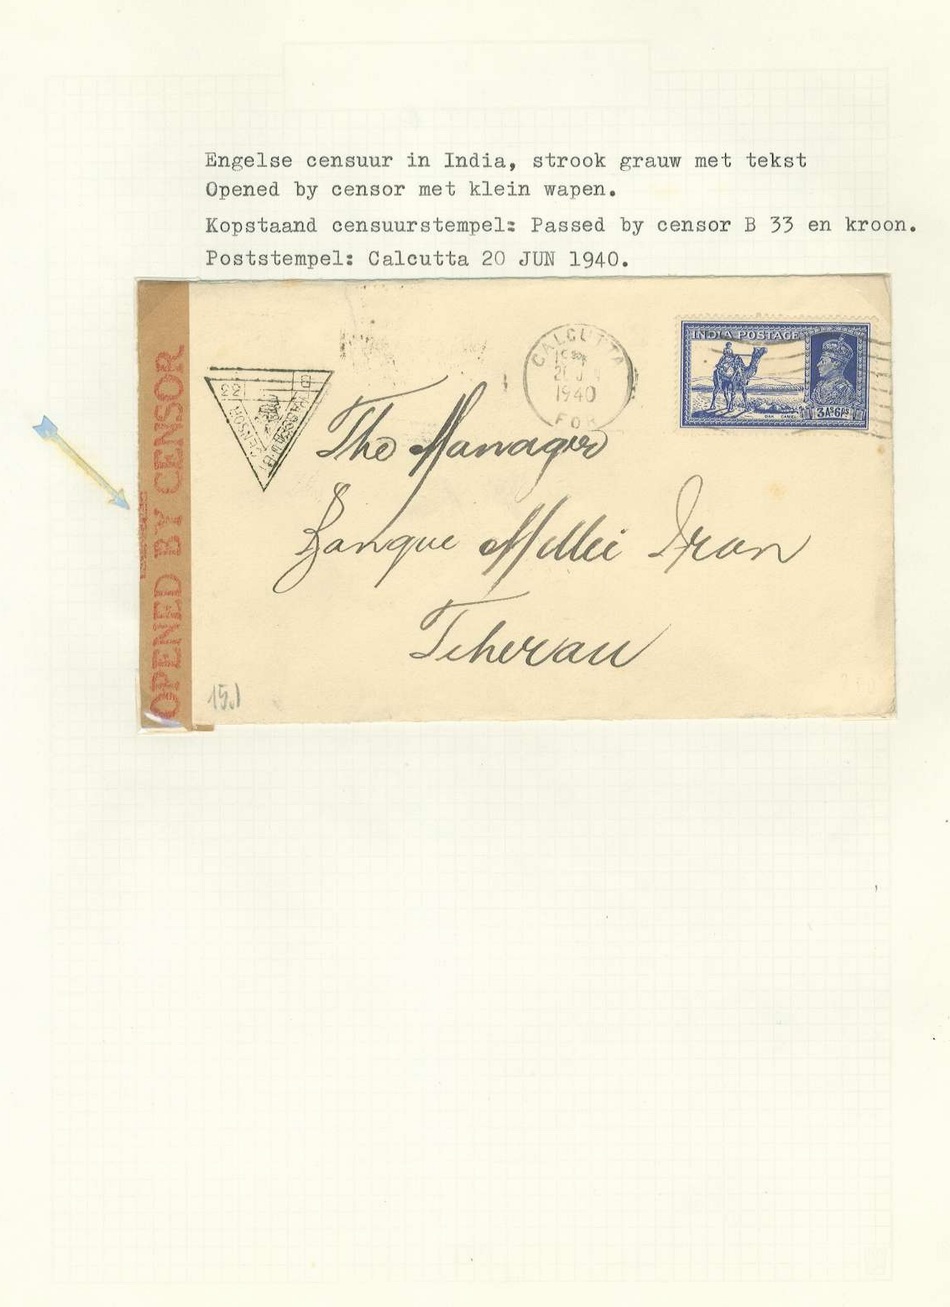 Engelse censuur in India, strook grauw met tekst
Opened by censor met klein wapen.
Kopstaand censuurstempel: Passed by censor B 33 en kroon.
Poststempel: Calcutta 20 JUN 1940.
CALCUTTA
1940
INDIA POSTAGE
3AS6PS
OPENED BY CENSOR
B
22
PASSED BY
CENSOR
The Manager
Banque Mellie Iran
Teheran
15.)